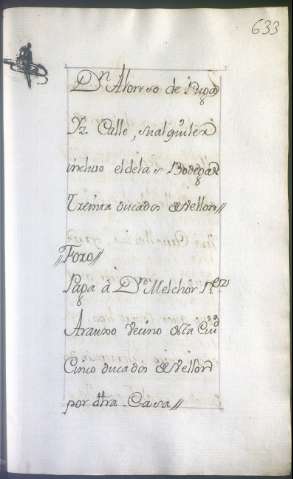 633
Dn Alonso de Puga
Calle, su alquiler
incluso el dela Bodega
treinta ducados de vellon//
//Foro//
Paga á Dn Melchor
Araujo Vecino de la Ciud
Cinco ducados de vellon
por dtha Casa//